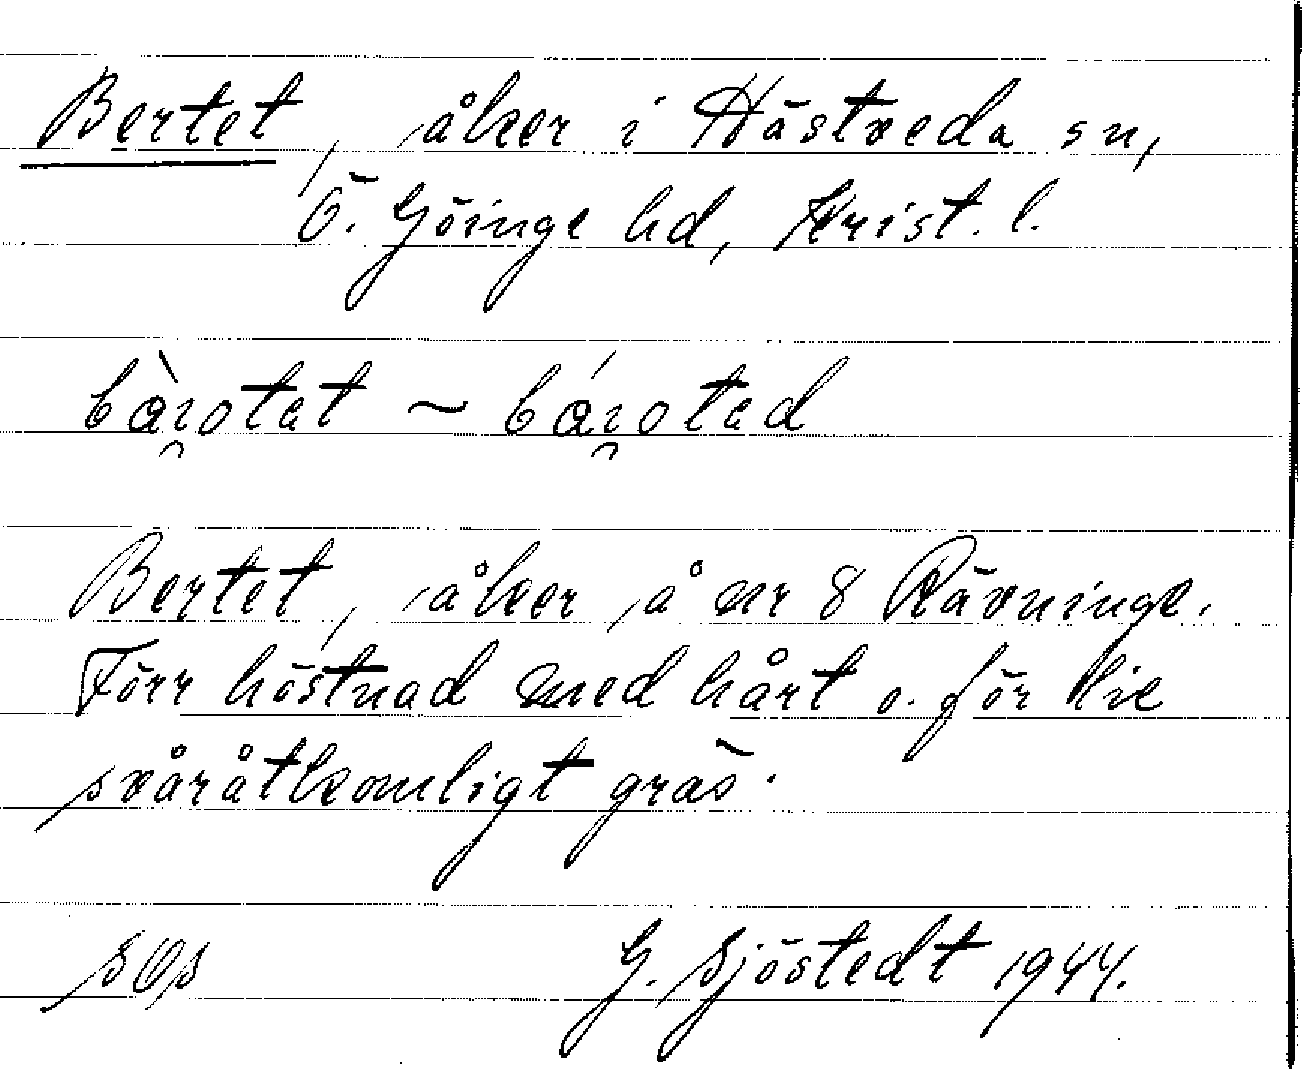 Bertet, åker i Hästveda sn,
Ö. Göinge hd, Krist. l.
Bertet, åker å nr 8 Rävninge.
Förr höstnad med hårt o. för lie
svåråtkomligt gräs.
G. Sjöstedt 1944.